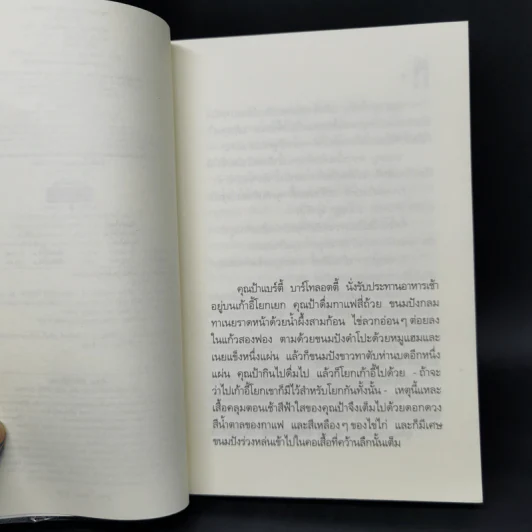 คุณป้าแบร์ตี้ บาร์โทลอตตี้ นั่งรับประทานอาหารเช้า
อยู่บนเก้าอี้โยกเยก คุณป้าดื่มกาแฟสี่ถ้วย ขนมปังกลม
ทาเนยราดหน้าด้วยน้ำผึ้งสามก้อน ไข่ลวกอ่อนๆ ต่อยลง
ในแก้วสองฟอง ตามด้วยขนมปังดำโปะด้วยหมูแฮมและ
เนยแข็งหนึ่งแผ่น แล้วก็ขนมปังขาวทาตับห่านบดอีกหนึ่ง
แผ่น คุณป้ากินไปดื่มไป แล้วก็โยกเก้าอี้ไปด้วย - ถ้าจะ
ว่าไปเก้าอี้โยกเขาก็มีไว้สำหรับโยกกันทั้งนั้น - เหตุนี้แหละ
เสื้อคลุมตอนเช้าสีฟ้าใสของคุณป้าจึงเต็มไปด้วยดอกดวง
สีน้ำตาลของกาแฟ และสีเหลืองๆ ของไข่ไก่ และก็มีเศษ
ขนมปังร่วงหล่นเข้าไปในคอเสื้อที่คว้านลึกนั้นเต็ม